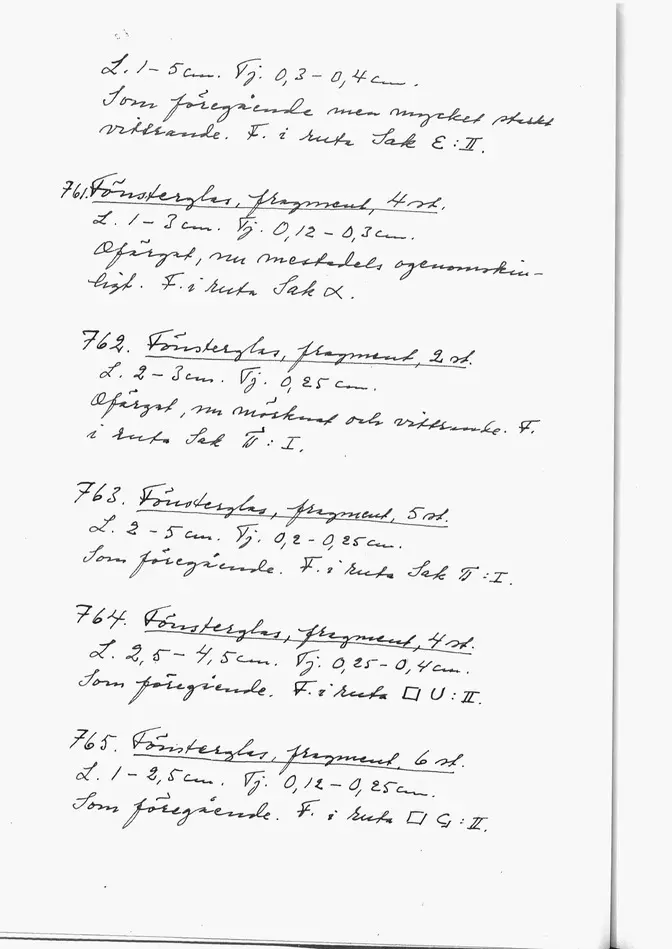 L. 1 – 5 cm. Tj. 0,3 – 0,4 cm.
Som föregående men mycket starkt
vittrande. F. i ruta Sak E : II.
761. Fönsterglas, fragment, 4 st.
L. 1 – 3 cm. Tj. 0,12 – 0,3 cm.
Ofärgat, nu mestadels ogenomskin–
ligt. F. i ruta Sak α.
762. Fönsterglas, fragment, 2 st.
L. 2 – 3 cm. Tj. 0,25 cm.
Ofärgat, nu mörknat och vittrande. F.
i ruta Sak π : I.
763. Fönsterglas, fragment, 5 st.
L. 2 – 5 cm. Tj. 0,2 – 0,25 cm.
Som föregående. F. i ruta Sak π : I.
764. Fönsterglas, fragment, 4 st.
L. 2,5 – 4,5 cm. Tj. 0,25 – 0,4 cm.
Som föregående. F. i ruta □ U : II.
765. Fönsterglas, fragment, 6 st.
L. 1 – 2,5 cm. Tj. 0,12 – 0,25 cm.
Som föregående. F. i ruta □ G : II.